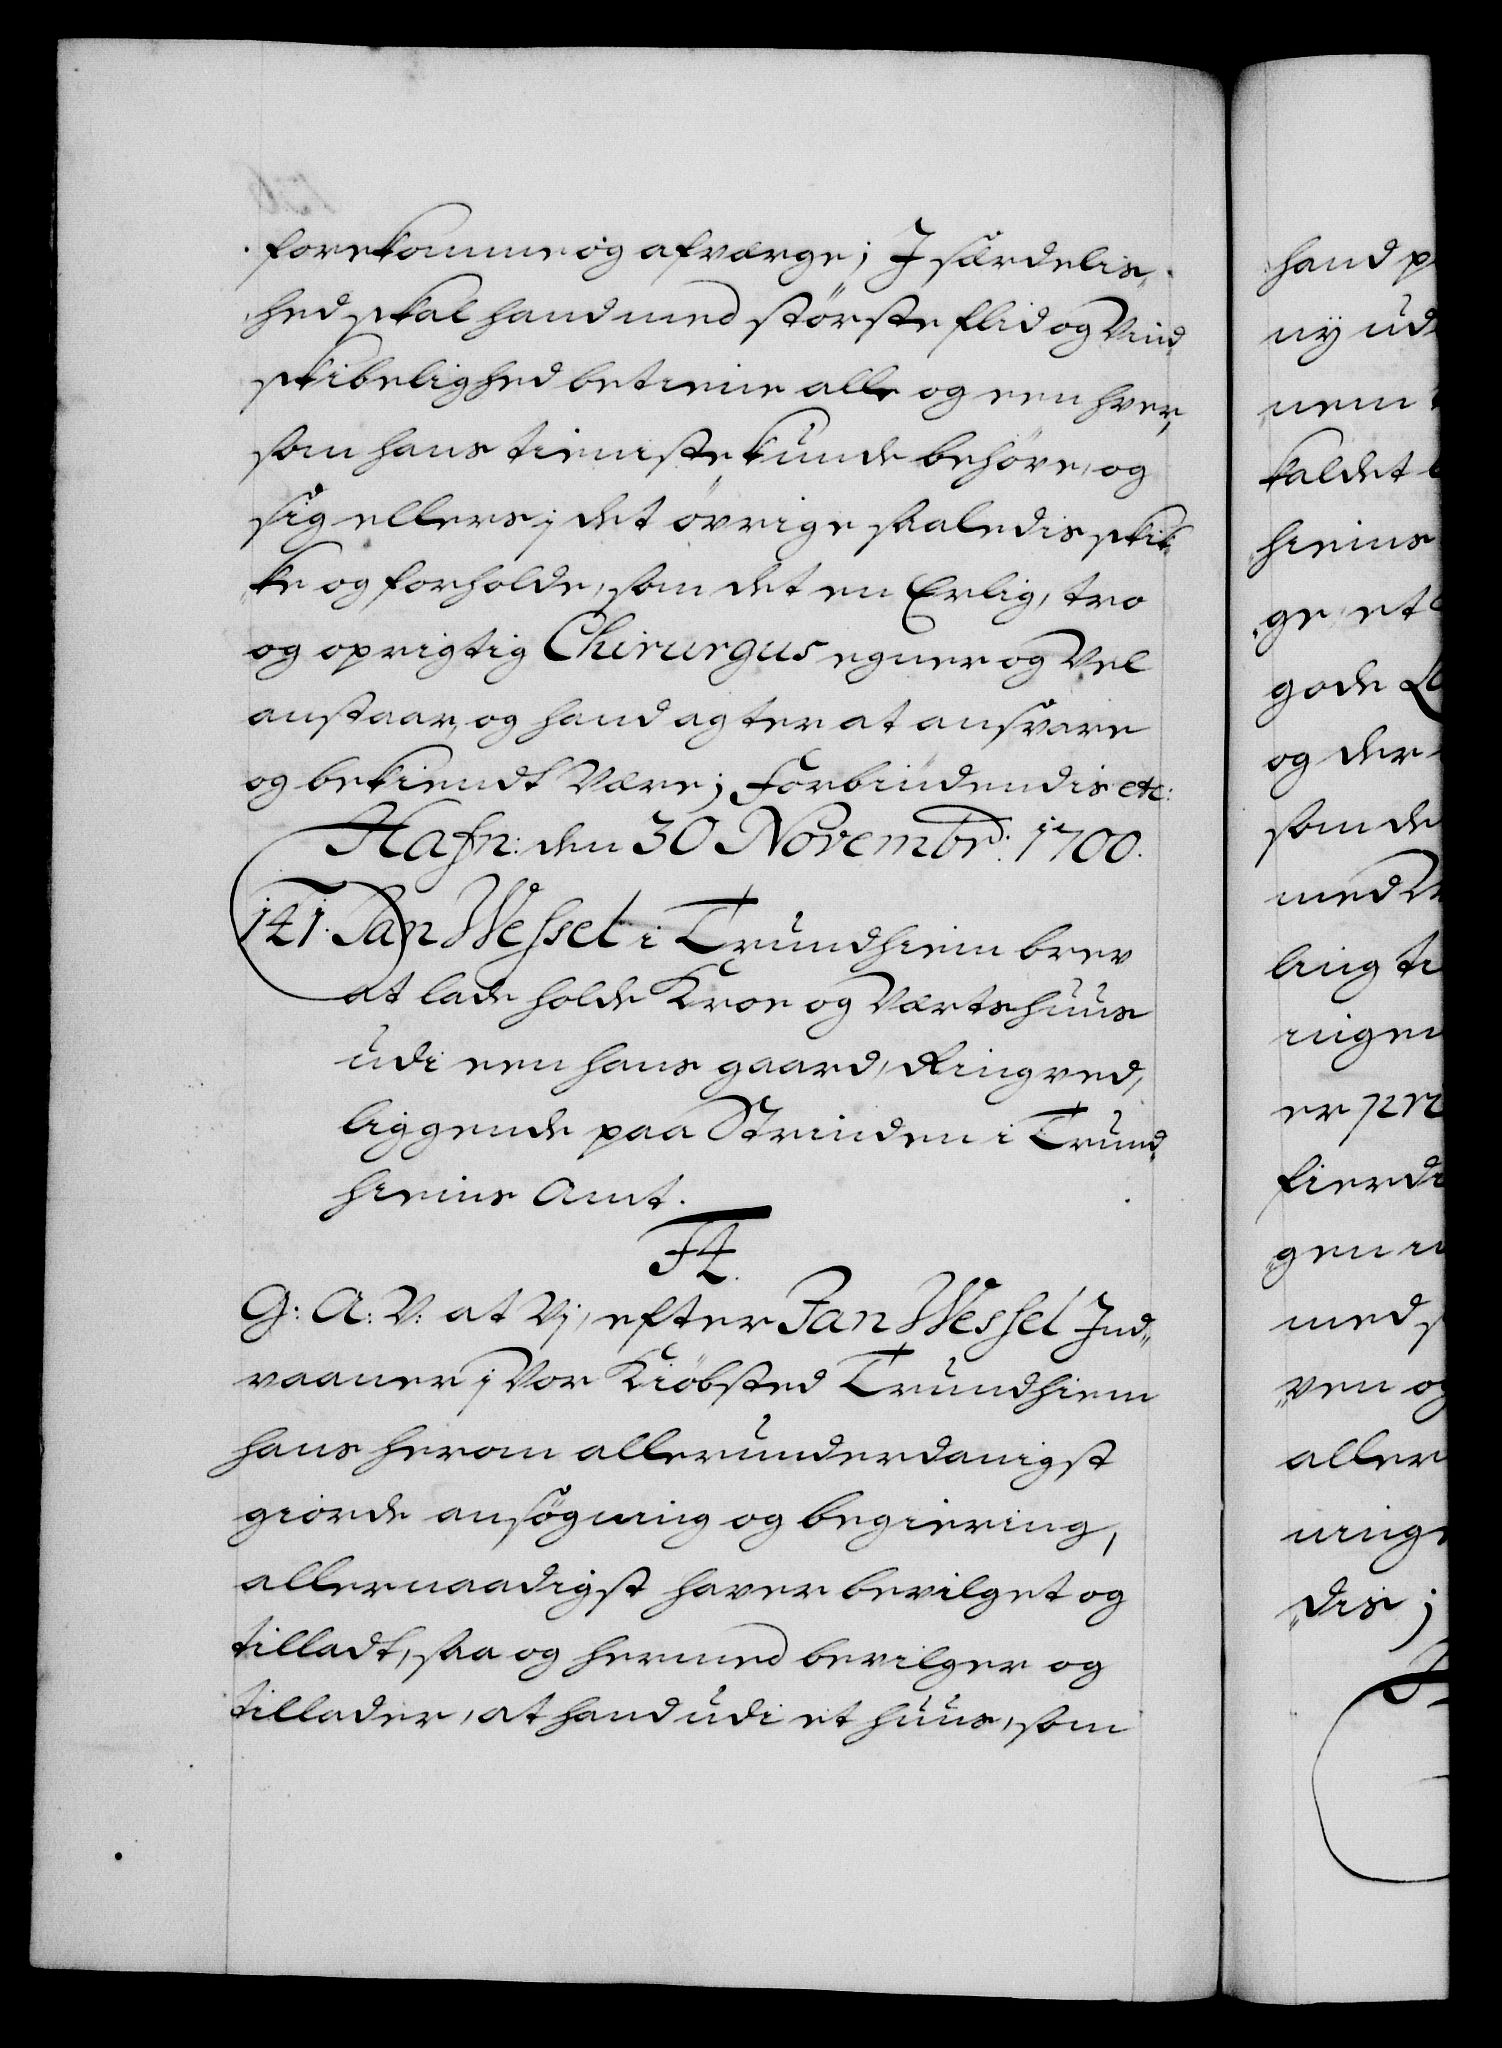 forekomme og afværge; J særdelis„
hed skal hand med største flid og Vind„
skibelighed betiene alle og een hver,
som hans tieniste kunde behøve, og
sig ellers j det øvrige saaledis skik„
ke og forholde, som det en Erlig, tro
og oprigtig Chirurgus egner og Vel
anstaar, og hand agter at ansvare
og bekiendt Være; Forbiudendis etc:
Hafn: den 30 Novembr: 1700.
141. Jan Wessel i Trundhiem brev
at lade holde Kroe og Værtshuus
udi een hans gaard, Ringved,
liggende paa Strinden i Trund„
hiems Amt.
F4.
G: A: V: at Vj, efter Jan Wessel Ind„
vaaner j Vor Kiøbsted Trundhiem
hans herom allerunderdanigst
giorde ansøgning og begiering,
allernaadigst haver bevilget og
tilladt, saa og hermed bevilger og
tillader, at hand udi et huus, som
hand p
ny ud
nem
kaldet
hiems
ge, et
gode
og der
som de
med
ling ti
ringen
er pri
fierde
gen
med s
ven og
aller
ninge
dis;